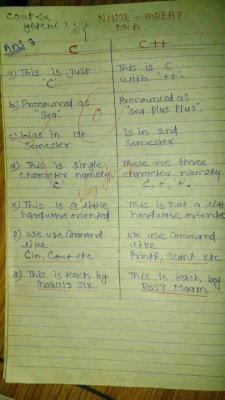 cout <<
getch();
NAME:- GREAT
MCA
Ans 3
C
C++
a) This is just
'C'
This is C
with '++'.
b) Pronounced as
"Sea".
Pronounced as
"Sea Plus Plus".
0
c) Was in 1st
Semester
Is in 2nd
Semester
d) This is single
character namely
'C'
These are three
character namely
C, +, +.
e) This is a little
hardware oriented
This is not a little
hardware oriented
f) We use Command
like
Cin, Cout etc
We use Command
like
Printf, Scanf etc
g) This is teach by
Sir
This is teach by
ROSY Maam